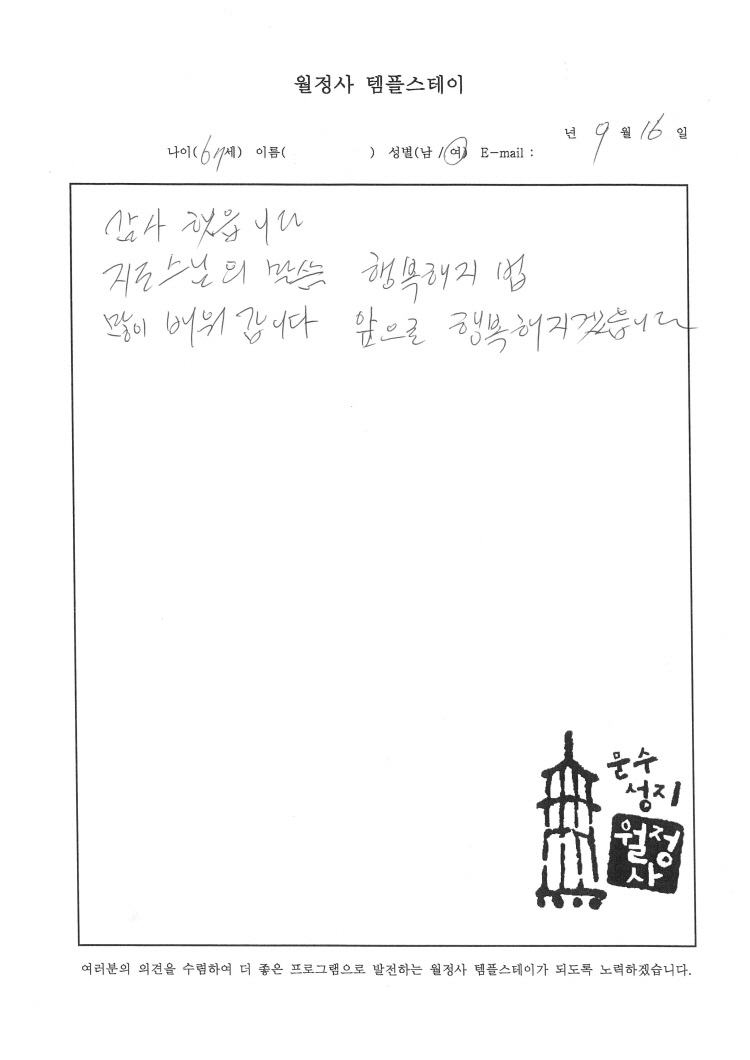 월정사 템플스테이
년 9 월 16 일
나이(67세) 이름( ) 성별(남 / 여) E-mail :
감사 했읍니다
지도스님의 말씀 행복해지 법
많이 배워 갑니다 앞으로 행복해지겠읍니다
문수
성지
월정
사
여러분의 의견을 수렴하여 더 좋은 프로그램으로 발전하는 월정사 템플스테이가 되도록 노력하겠습니다.